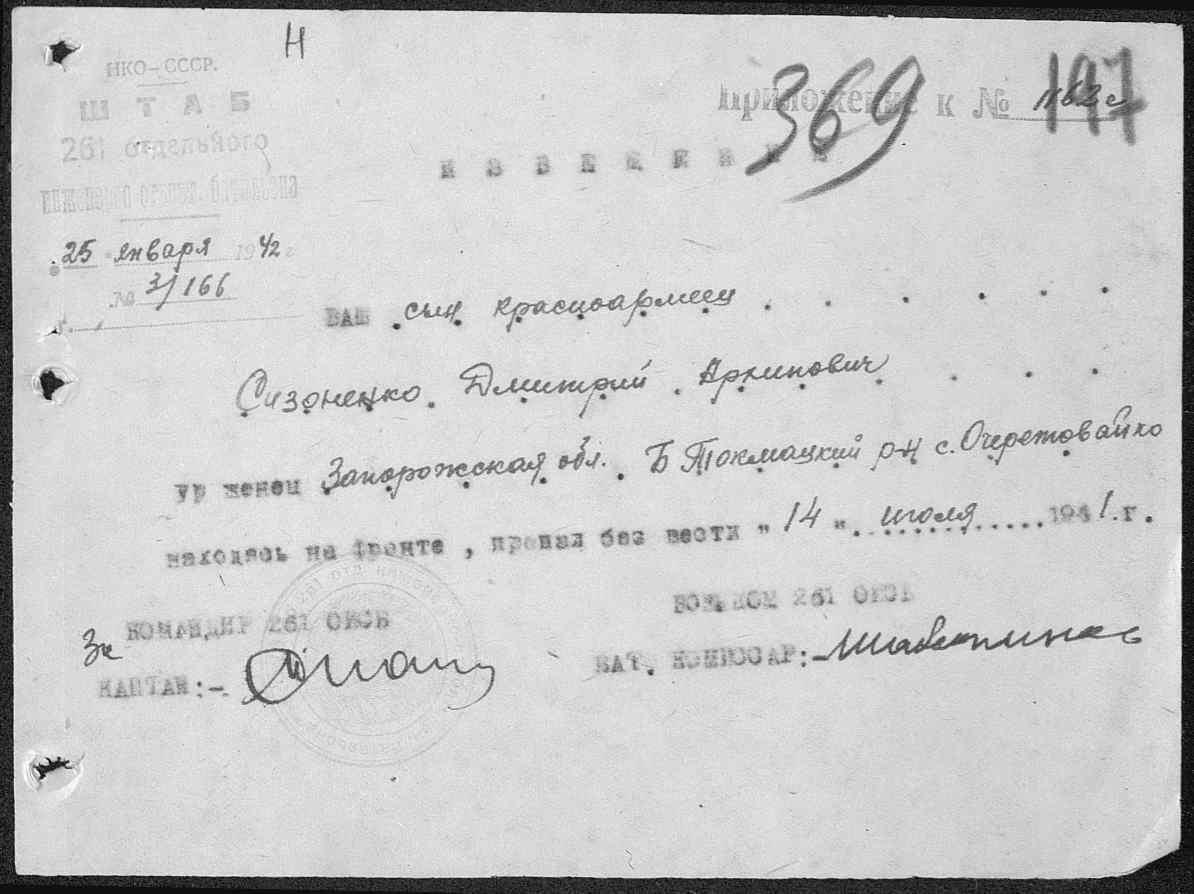 Н
НКО-СССР.
ШТАБ
261 отдельного
Приложение к № 1162с
369
197
ИЗВЕЩЕНИЕ
25 января 1942 г
№ 3/166
ВАШ сын красноармеец
Сизоненко Дмитрий Архипович
ур женец Запорожская обл. Б Токмацкий р-н с. Очеретовайко
находясь на фронте, пропал без вести "14" июля 1941. г.
КОМАНДИР 261 ОИСБ
За
КАПТАН:-
ВОЕНКОМ 261 ОИСБ
БАТ. КОМИССАР:-